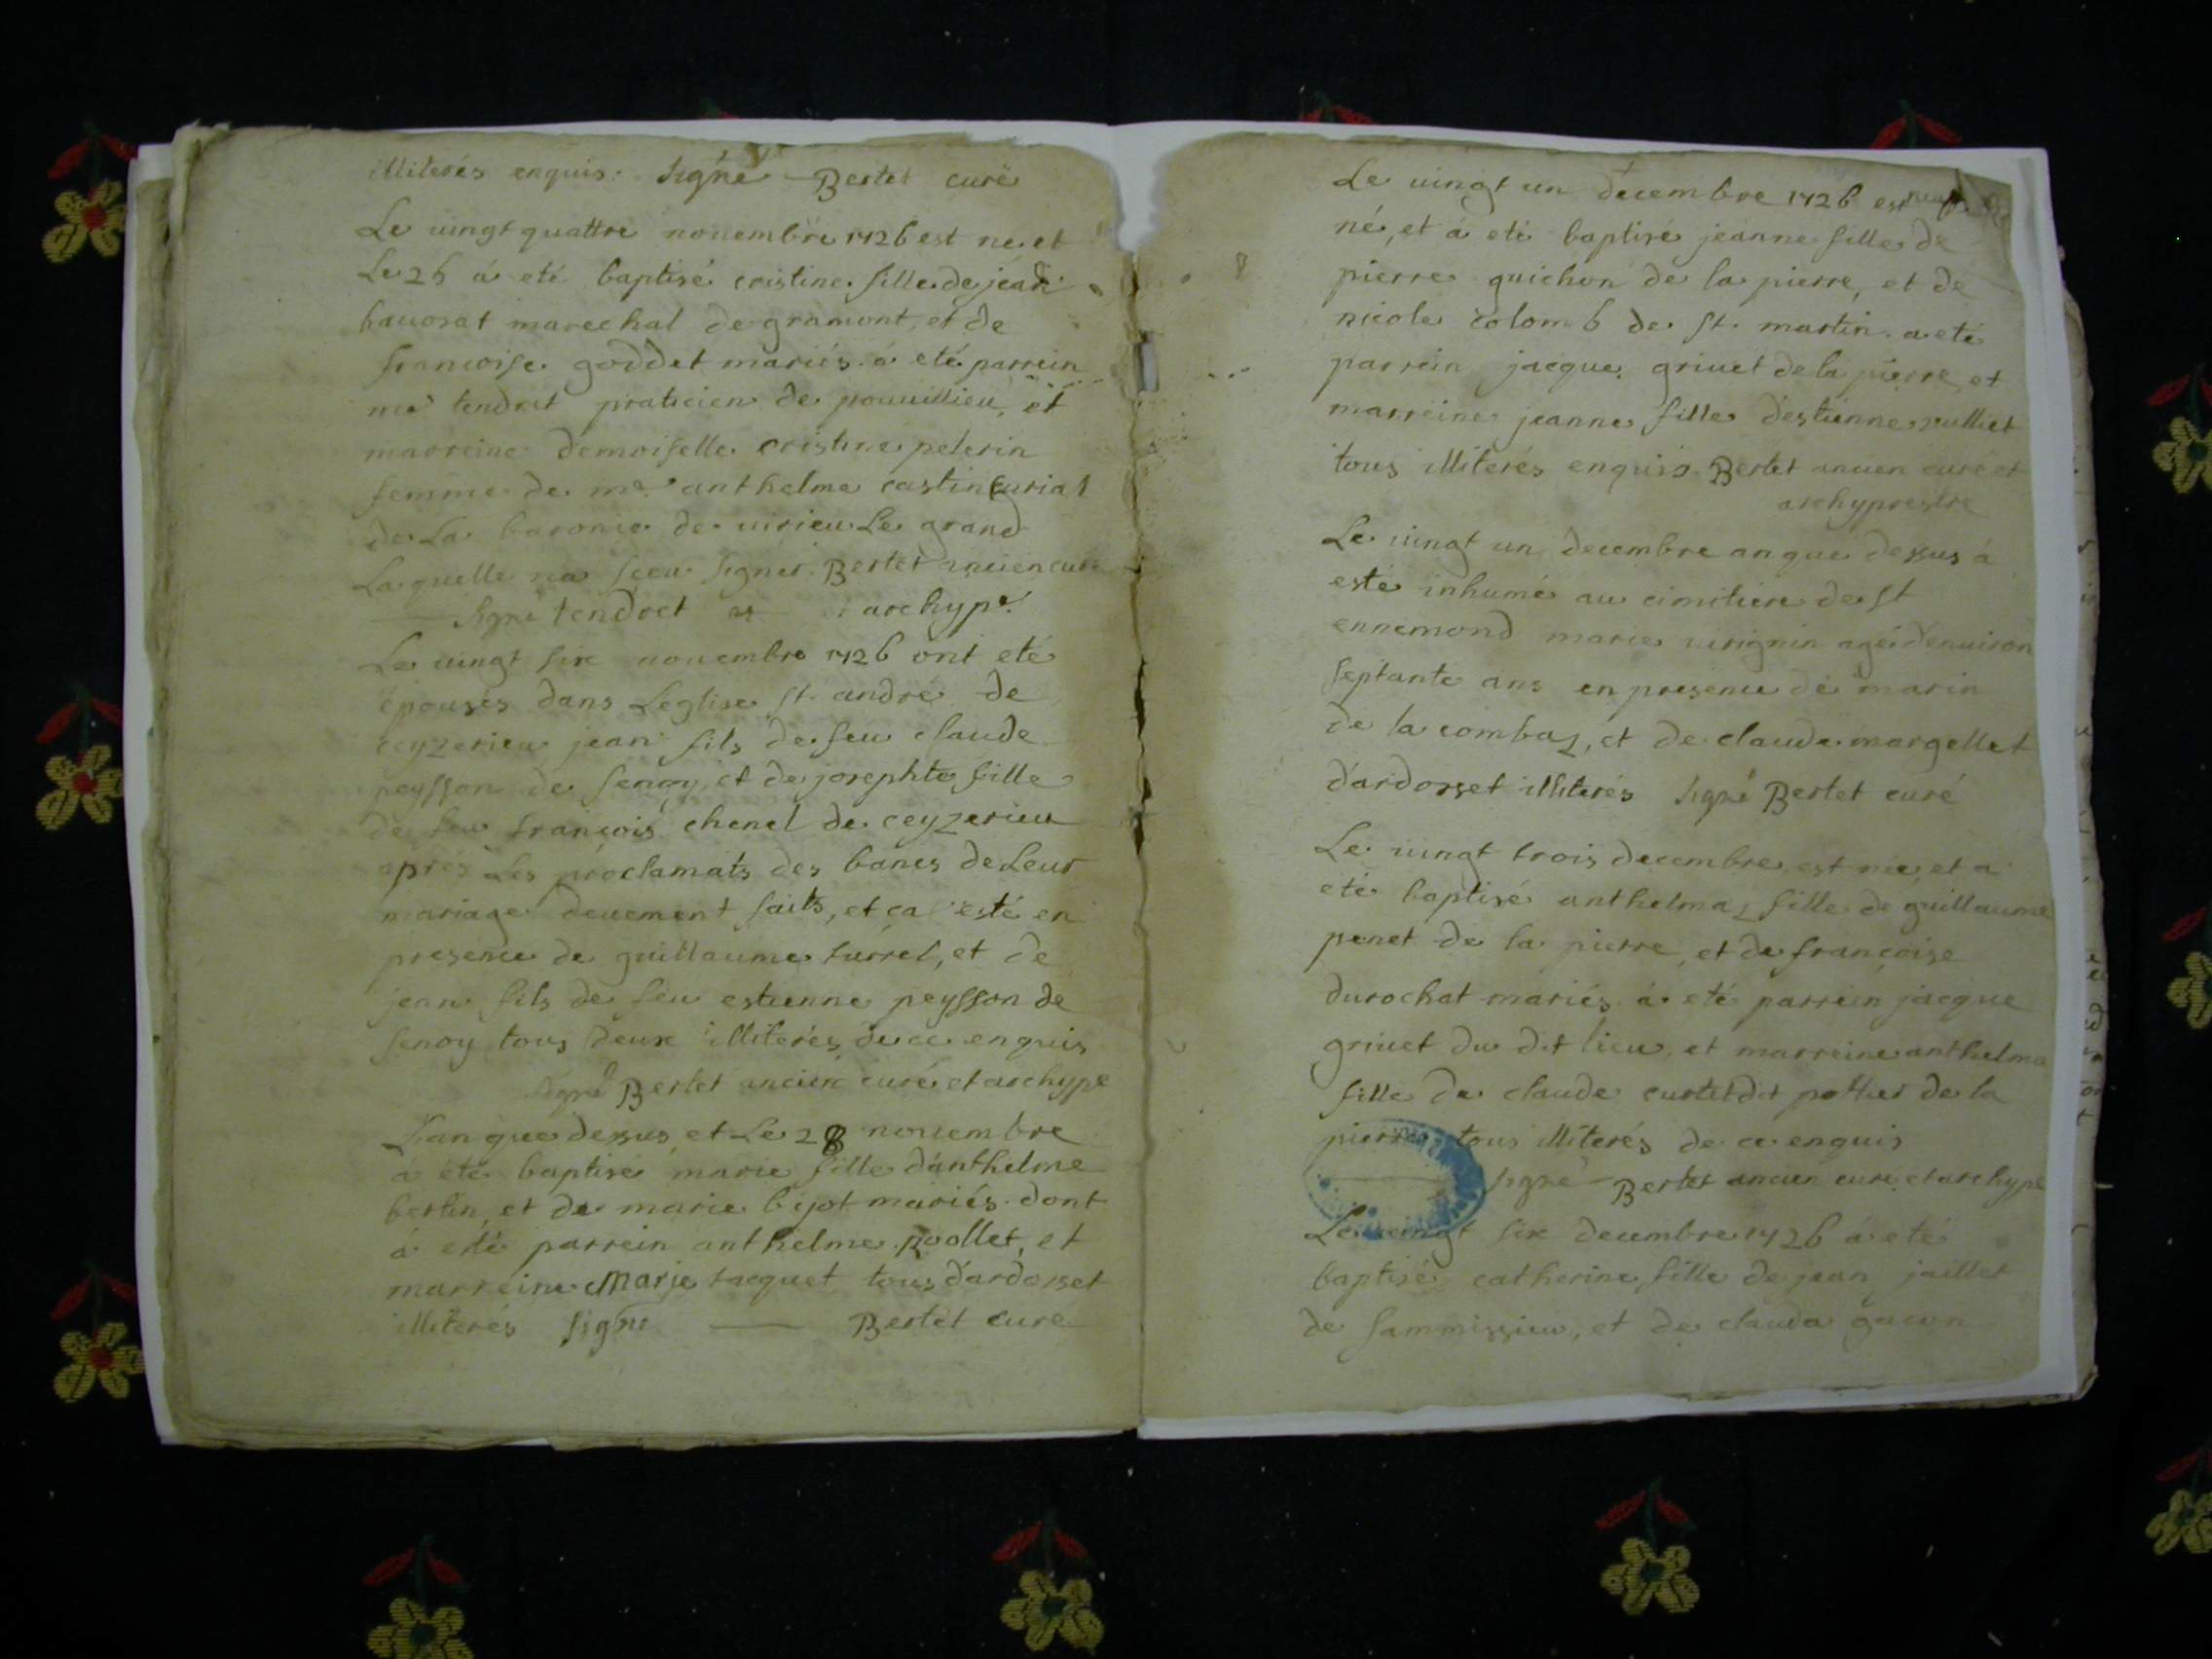 illiterés enquis. signé Bertet curé
Le uingt quattre nouembre 1726 est ne et
Le 26 á eté baptisé cristine fille de jean
bauorat marechal de gramont, et de
francoise goddet mariés. á eté parrein
me tendret praticien de pouuillieu, et
marreine demoiselle cristine pelerin
femme de me. anthelme castin curial
de La baronie de uirieu Le grand
Laquelle na sceu signer. Bertet ancien curé
signé tendret et archypr.
Le uingt six nouembre 1726 ont eté
épousés dans Leglise st. andré de
ceyzerieu jean fils de feu claude
peysson de senoy, et de josephte fille
de feu françois chenel de ceyzerieu
aprés Les proclamats des bancs de Leur
mariage deuement faits, et ça esté en
presence de guillaume turrel, et de
jean fils de feu estienne peysson de
senoy tous deux illiterés de ce enquis
signé Bertet ancien curé et archypr
L'an que dessus et Le 28 nouembre
á eté baptisé marie fille d'anthelme
bertin, et de marie bejot mariés. dont
á esté parrein anthelme pollet, et
marreine Marie jacquet tous d'ardosset
illiterés signé Bertet curé
Le uingt un decembre 1726 est
né, et á eté baptisé jeanne fille de
pierre guichon de la pierre, et de
nicole colomb de st. martin. a eté
parrein jacque griuet de la pierre, et
marreine jeanne fille destienne
tous illiterés enquis Bertet ancien curé et
archyprestre
Le uingt un decembre an que dessus á
esté inhumé au cimitiere de st
ennemond marie uirignin agée d'enuiron
septante ans en presence de marin
de la combaz, et de claude margellet
d'ardosset illiterés signé Bertet curé
Le uingt trois decembre est née, et a
eté baptisé anthelmaz fille de guillaume
penet de la pierre, et de françoise
durochat mariés. á eté parrein jacque
griuet du dit lieu, et marreine anthelma
fille de claude curtet dit pottier de la
pierre tous illiterés de ce enquis
signé Bertet ancien curé et archypr
Le uingt six decembre 1726 á eté
baptisé catherine fille de jean jaillet
de sammissieu, et de clauda gacon